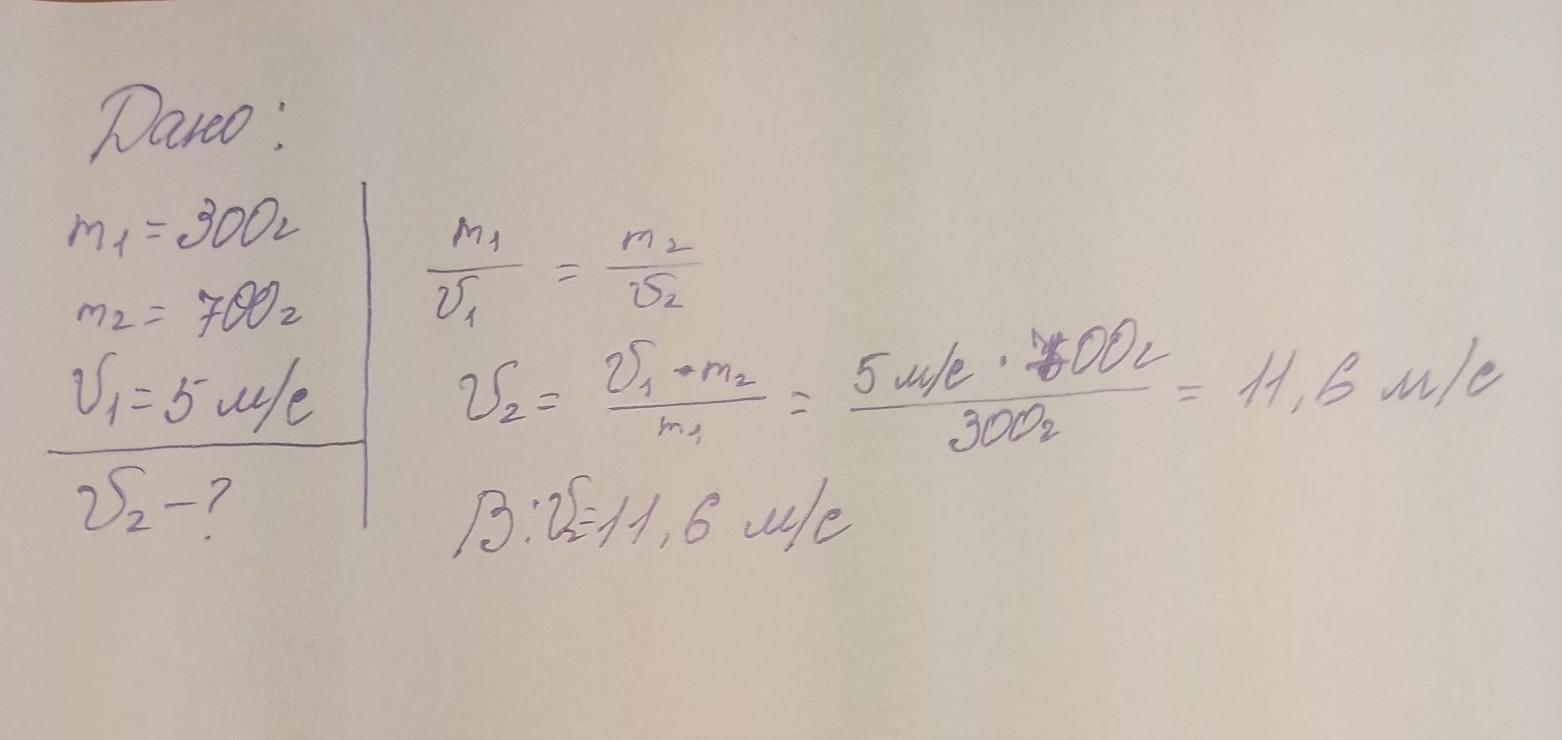 Дано:
m₁ = 300г
m₂ = 700г
υ₁ = 5 м/с
υ₂ – ?
m₁/υ₁ = m₂/υ₂
υ₂ = υ₁ · m₂/m₁ = 5 м/с · 700г/300г = 11,6 м/с
В: υ₂ = 11,6 м/с